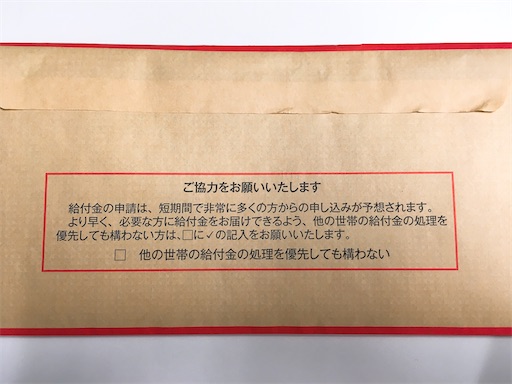 ご協力をお願いいたします
給付金の申請は、短期間で非常に多くの方からの申し込みが予想されます。
より早く、必要な方に給付金をお届けできるよう、他の世帯の給付金の処理を
優先しても構わない方は、□に✓の記入をお願いいたします。
□ 他の世帯の給付金の処理を優先しても構わない